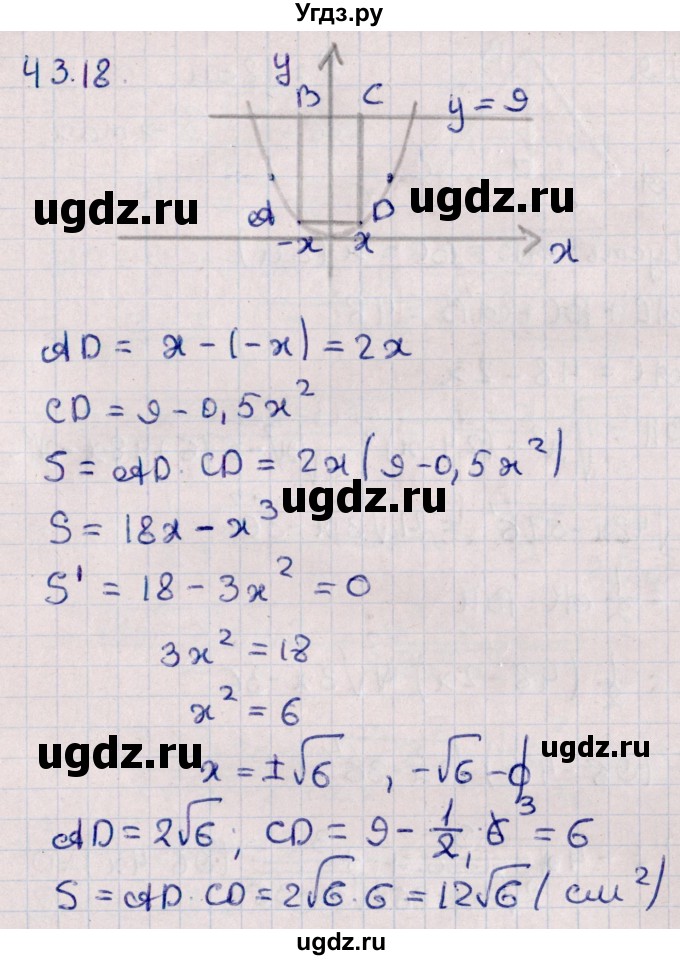 Угдз.ру
43.18
y
B C
y = 9
ugdz.ru ugdz.ru
A D
-x x x
AD = x - (-x) = 2x
CD = 9 - 0,5x²
S = AD · CD = 2x(9 - 0,5x²)
ugdz.ru
S = 18x - x³
S' = 18 - 3x² = 0
3x² = 18
x² = 6
ugdz.ru ugdz.ru
x = ±√6 , -√6 - ∅
AD = 2√6; CD = 9 - 1/2 · 6 3 = 6
1
S = AD · CD = 2√6 · 6 = 12√6 (см²)
ugdz.ru